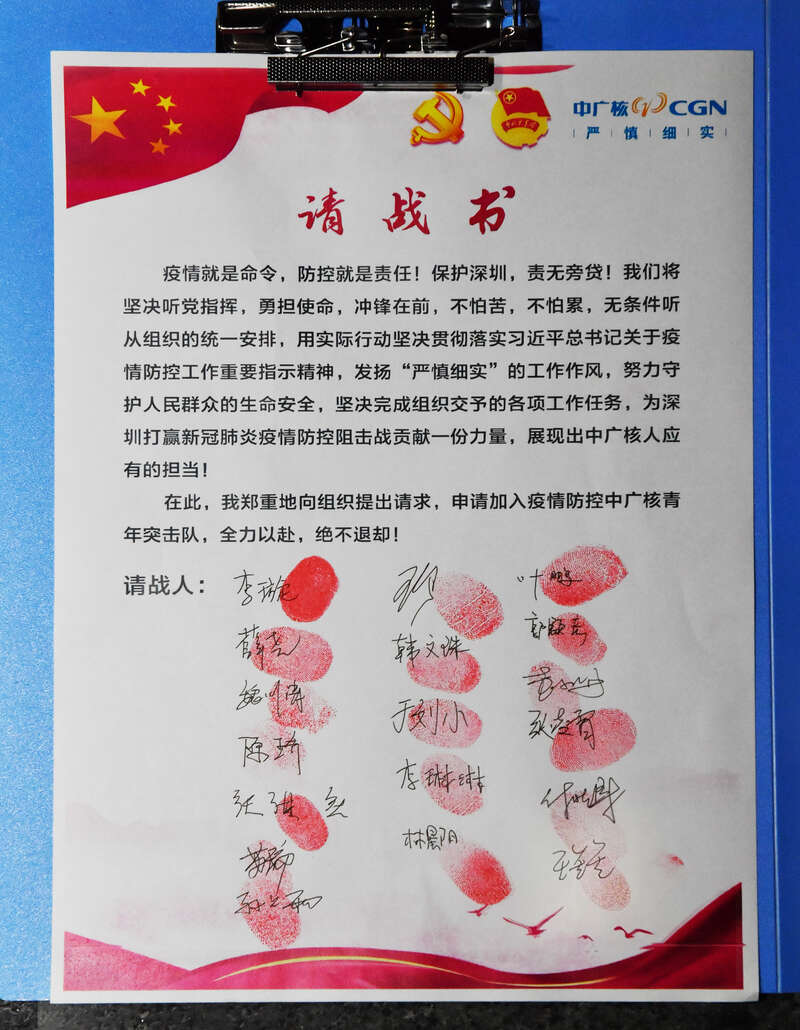 中广核 CGN
严慎细实
请战书
疫情就是命令，防控就是责任！保护深圳，责无旁贷！我们将
坚决听党指挥，勇担使命，冲锋在前，不怕苦，不怕累，无条件听
从组织的统一安排，用实际行动坚决贯彻落实习近平总书记关于疫
情防控工作重要指示精神，发扬“严慎细实”的工作作风，努力守
护人民群众的生命安全，坚决完成组织交予的各项工作任务，为深
圳打赢新冠肺炎疫情防控阻击战贡献一份力量，展现出中广核人应
有的担当！
在此，我郑重地向组织提出请求，申请加入疫情防控中广核青
年突击队，全力以赴，绝不退却！
请战人： 叶鹏
韩文珠
李琳琳
林晨阳